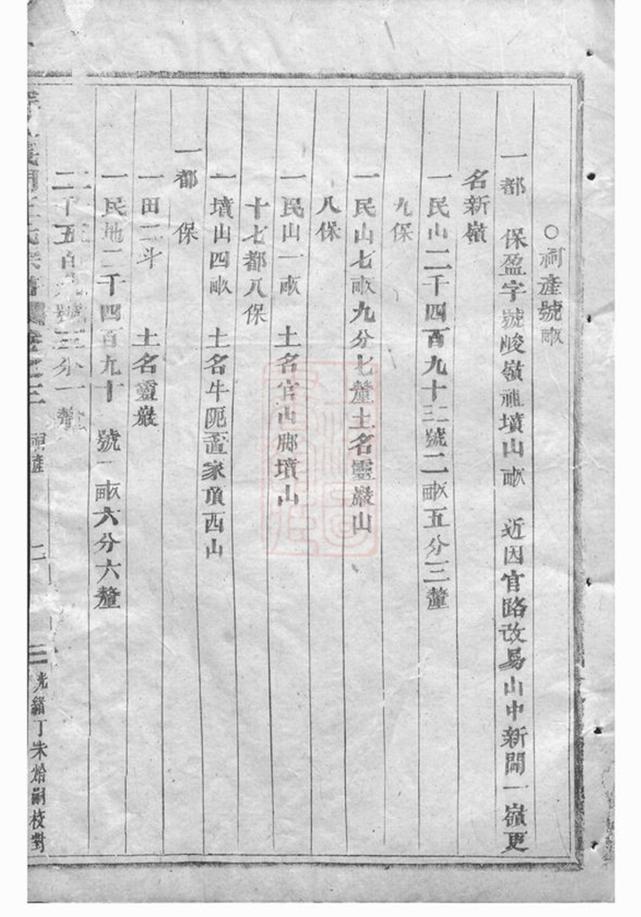 ○祠產號畝
一都 保盈字號峻嶺祖墳山畝 近因官路改易山中新開一嶺更
名新嶺
一民山二千四百九十三號二畝五分三釐
九保
一民山七畝九分七釐土名靈巖山
八保
一民山一畝 土名官山脚墳山
十七都八保
一墳山四畝 土名牛軛 家頂西山
一都 保
一田二斗 土名靈巖
一民地二千四百九十 號一畝六分六釐
二千五百 號三分一釐
祠產
光緒丁未 嗣校對